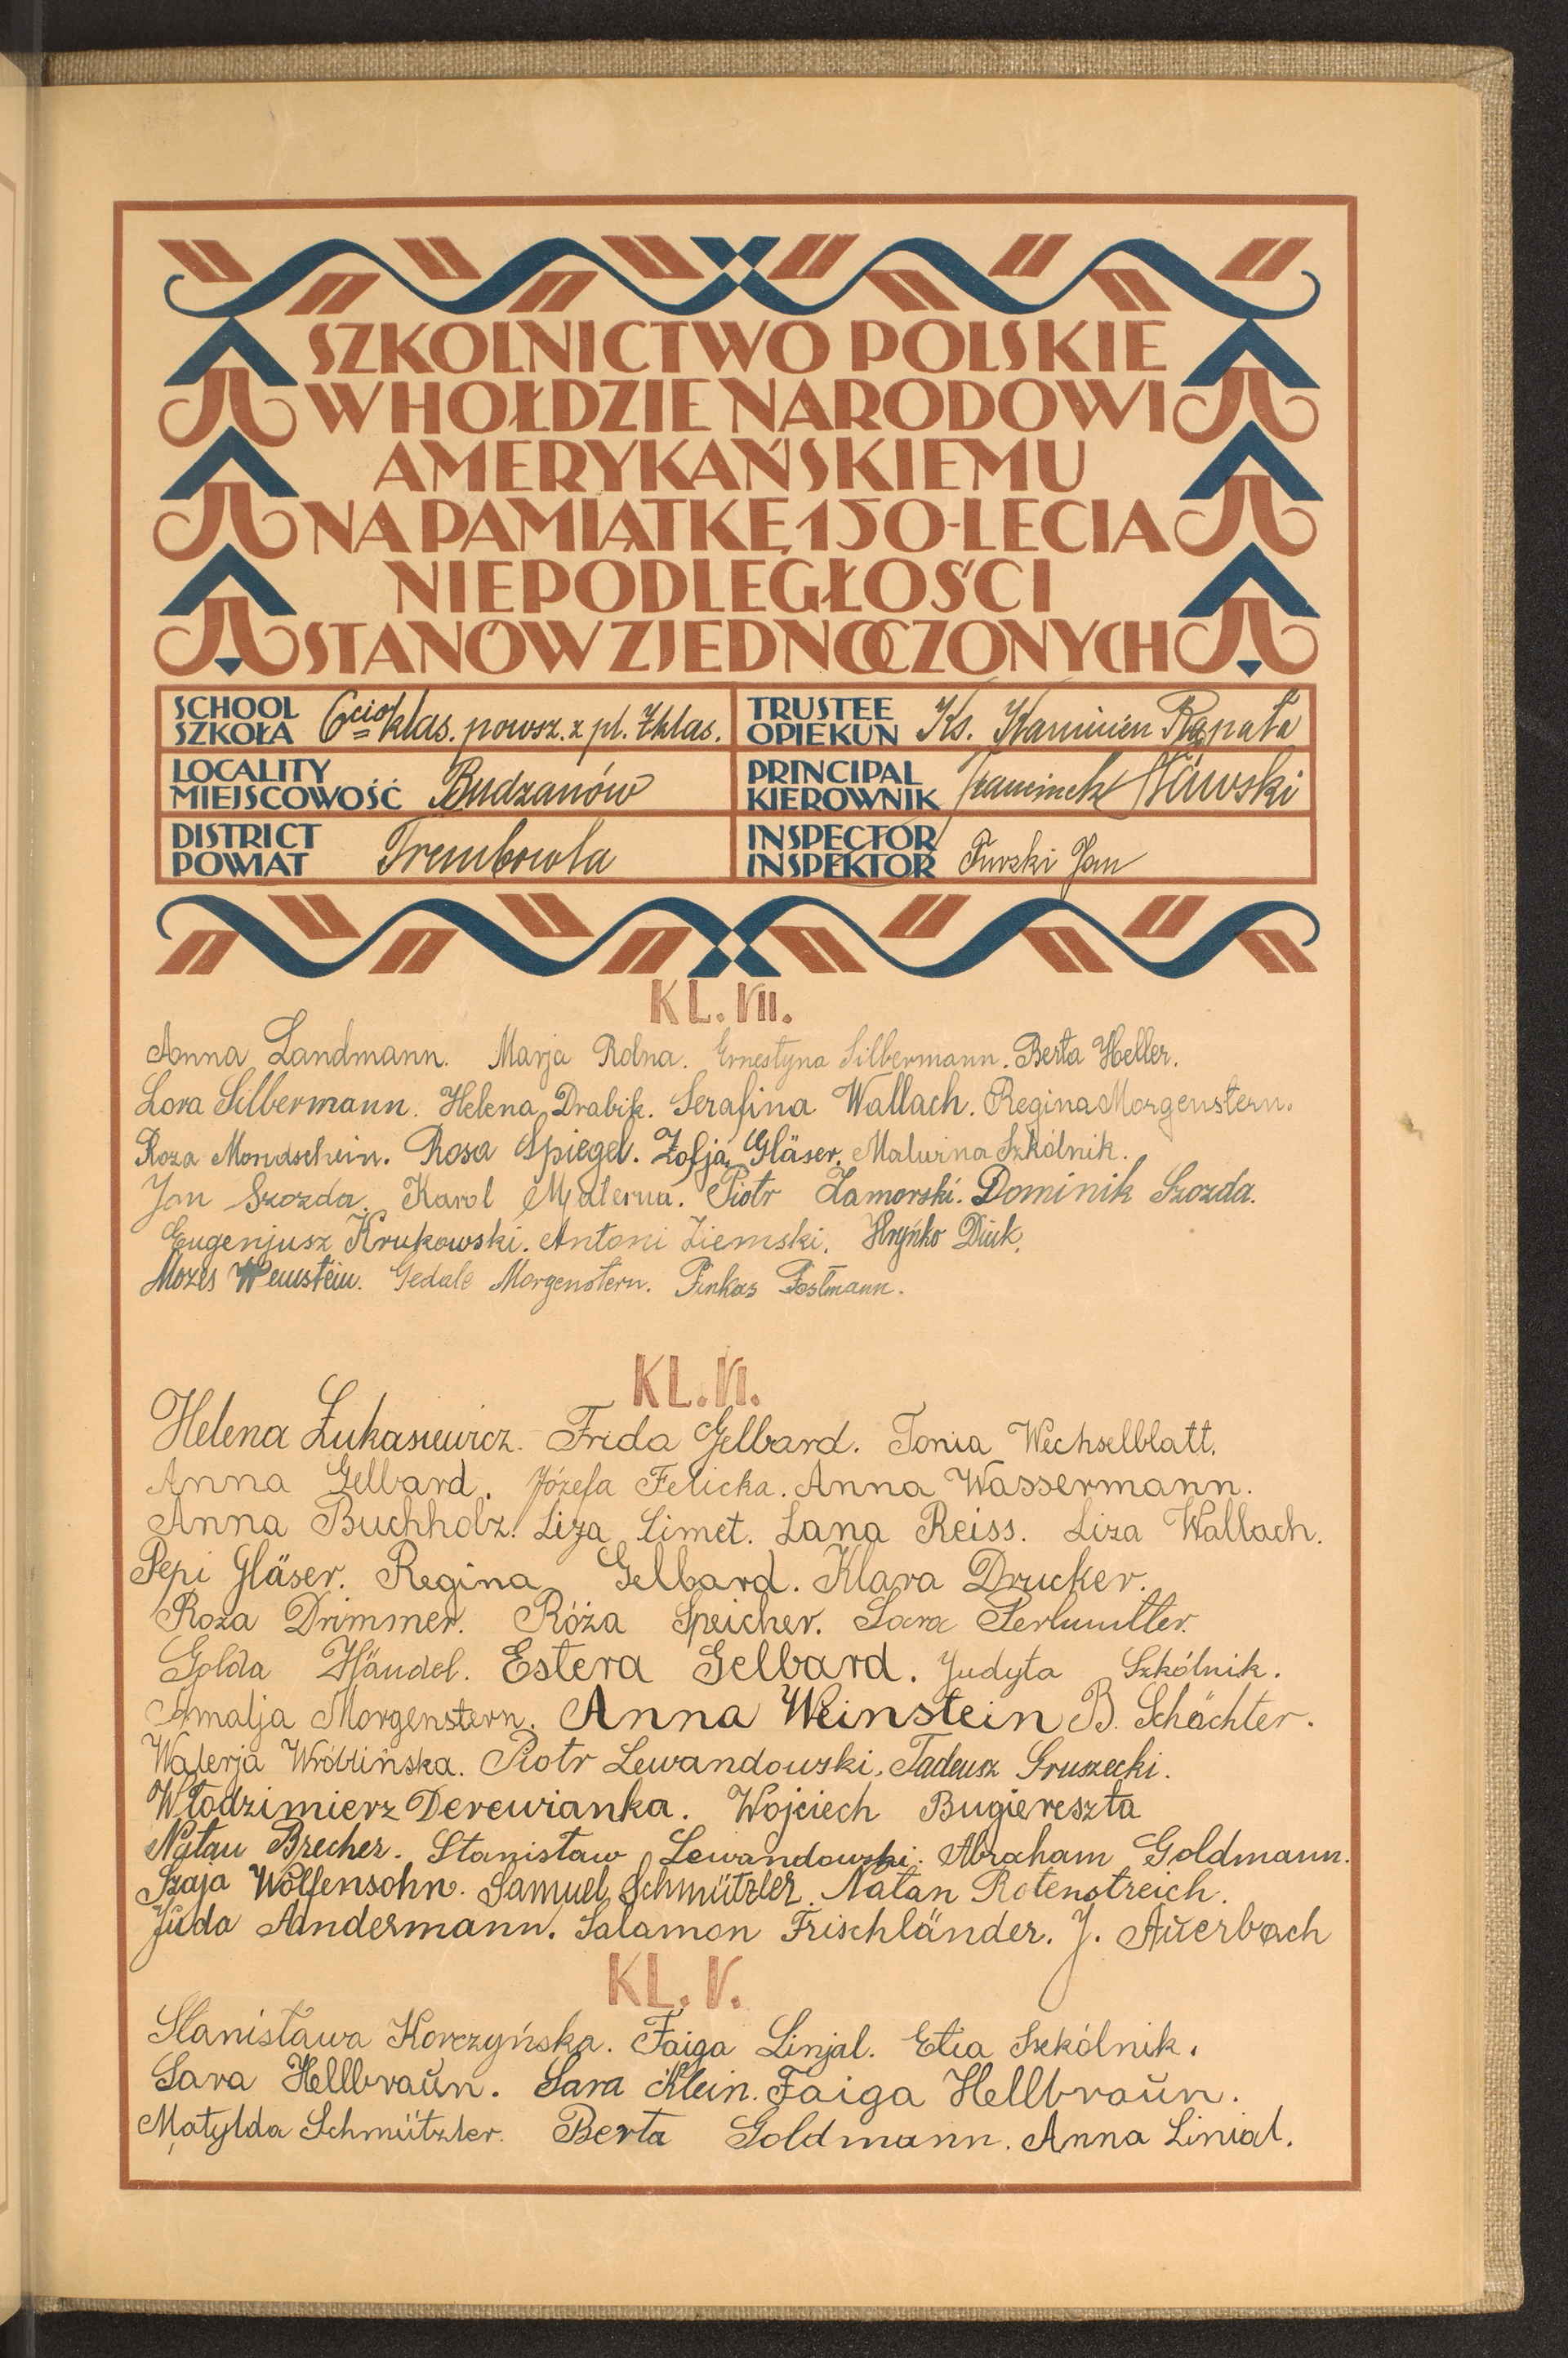 SZKOLNICTWO POLSKIE
W HOŁDZIE NARODOWI
AMERYKAŃSKIEMU
NA PAMIĄTKĘ 150-LECIA
NIEPODLEGŁOŚCI
STANÓW ZJEDNOCZONYCH
SCHOOL
SZKOŁA 6cio klas. powsz. z pl. 7klas.
TRUSTEE
OPIEKUN Ks. Rąpała
LOCALITY
MIEJSCOWOŚĆ Budzanów
PRINCIPAL
KIEROWNIK
DISTRICT
POWIAT Trembowla
INSPECTOR
INSPEKTOR Furski Jan
KL. VII.
Anna Landmann. Marja Rolna. Ernestyna Silbermann. Berta Heller.
Lora Silbermann. Helena Drabik. Serafina Wallach. Regina Morgenstern.
Roza Mondschein. Rosa Spiegel. Zofja Gläser. Malwina Szkólnik.
Jan Szozda. Karol Materna. Piotr Zamorski. Dominik Szozda.
Eugenjusz Krukowski. Antoni Ziemski. Hryńko Diuk.
Mozes Weinstein. Gedale Morgenstern. Pinkas Postmann.
KL. VI.
Helena Łukasiewicz. Frida Gelbard. Tonia Wechselblatt.
Anna Gelbard. Józefa Felicka. Anna Wassermann.
Anna Buchholz. Liza Limet. Lana Reiss. Liza Wallach.
Pepi Gläser. Regina Gelbard. Klara Drucker.
Roza Drimmer. Róża Speicher. Sara Perlmutter.
Golda Händel. Estera Gelbard. Judyta Szkólnik.
Amalja Morgenstern. Anna Weinstein B. Schächter.
Walerja Wróblińska. Piotr Lewandowski. Tadeusz Gruszecki.
Włodzimierz Derewianka. Wojciech Bugiereszta
Natan Brecher. Stanisław Lewandowski. Abraham Goldmann.
Szaja Wolfensohn. Samuel Schmützler. Natan Rotenstreich.
Juda Andermann. Salamon Frischländer. J. Auerbach
KL. V.
Stanisława Korczyńska. Faiga Linjal. Etia Szkólnik.
Sara Hellbraŭn. Sara Klein. Faiga Hellbraŭn.
Matylda Schmützler. Berta Goldmann. Anna Linial.